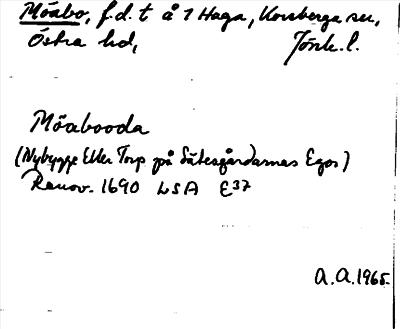 Möabo, f.d. t å 1 Haga, Korsberga sn,
Östra hd, Jönk. l.
Möabooda
(Nybygge Eller Torp på Sätesgårdarnas Egor)
Renov. 1690 LSA E37
A.A. 1965.